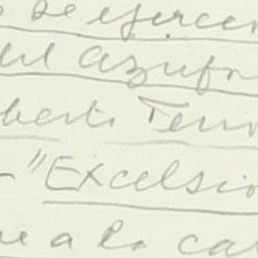 se ejerci
del Azufr
bert. Terr
"Excelsio
e a la. ca